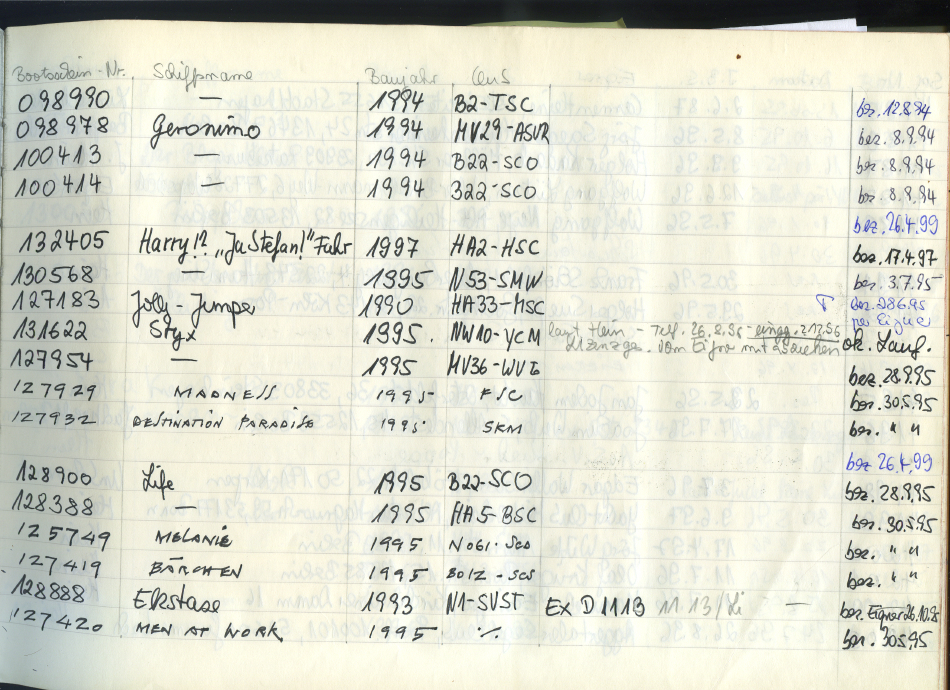 Bootsschein-Nr. Schiffsname Baujahr Club
098990 — 1994 B2-TSC bez. 12.8.94
098978 Geronimo 1994 MV29-ASVR bez. 8.9.94
100413 — 1994 B22-SCO bez. 8.9.94
100414 — 1994 B22-SCO bez. 8.9.94
bez. 26.4.99
132405 Harry!? „Ja Stefan!" Fuhr 1997 HA2-HSC bez. 17.4.97
130568 1995 N53-SMW bez. 3.7.95
127183 Jolly-Jumper 1990 HA33-MSC T bez. 28.6.95
per Eigner
131622 Styx 1995. NW10-YCM laut Hein - Tel. 26.2.96 - eingeg. 2.12.96 ok. Lauf.
vom Eigner mit
127954 — 1995 MV36-WVT bez. 28.9.95
127929 MADNESS 1995 FSC bez. 30.5.95
127932 DESTINATION PARADISE 1995 SKM bez. " "
bez 26.4.99
128900 Life 1995 B22-SCO bez. 28.9.95
128388 — 1995 HA5-BSC bez. 30.5.95
125749 MELANIE 1995 N061-SCO bez. " "
127419 BÄRCHEN 1995 B012-SCS bez. " "
128888 Ekstase 1993 N1-SVST EX D1113 11 13/Li — bez. Eigner 26.10.95
127420 MEN AT WORK 1995 ·/. bez. 30.5.95